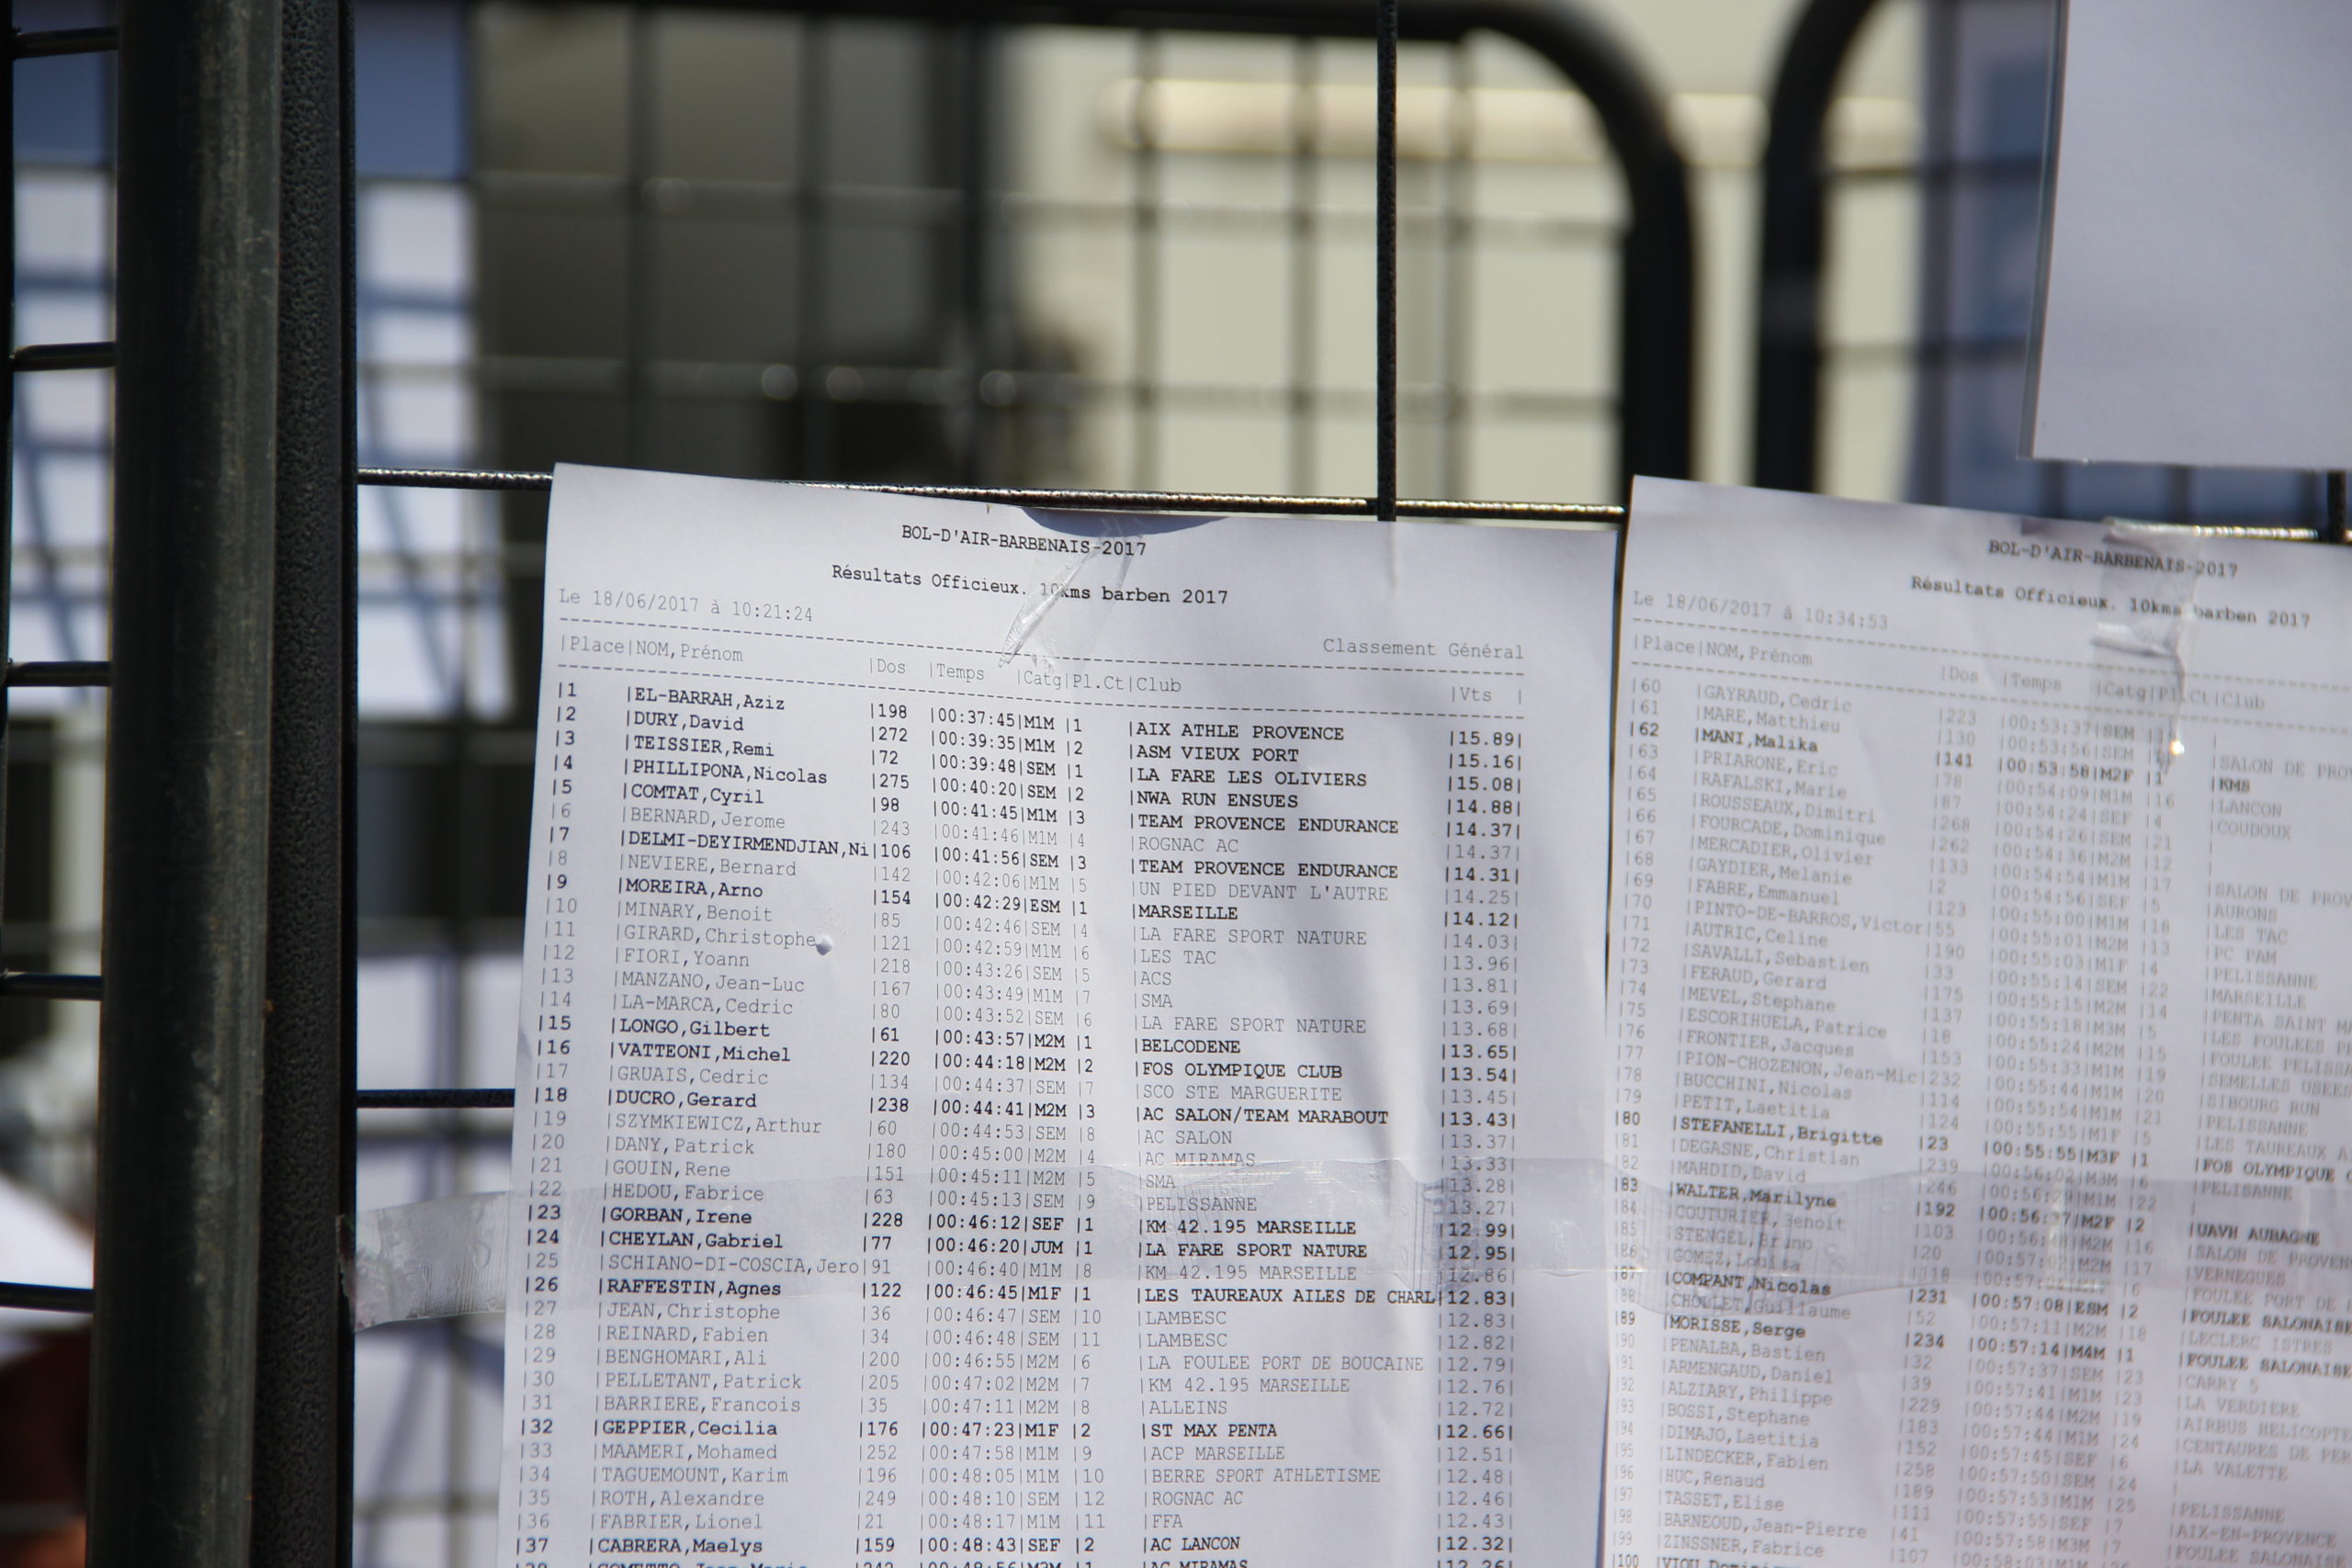 BOL-D'AIR-BARBENAIS-2017
Résultats Officieux. 10kms barben 2017
Le 18/06/2017 à 10:21:24
Classement Général
|Place|NOM,Prénom |Dos |Temps |Catg|Pl.Ct|Club |Vts |
|1 |EL-BARRAH,Aziz |198 |00:37:45|M1M |1 |AIX ATHLE PROVENCE |15.89|
|2 |DURY,David |272 |00:39:35|M1M |2 |ASM VIEUX PORT |15.16|
|3 |TEISSIER,Remi |72 |00:39:48|SEM |1 |LA FARE LES OLIVIERS |15.08|
|4 |PHILLIPONA,Nicolas |275 |00:40:20|SEM |2 |NWA RUN ENSUES |14.88|
|5 |COMTAT,Cyril |98 |00:41:45|M1M |3 |TEAM PROVENCE ENDURANCE |14.37|
|6 |BERNARD,Jerome |243 |00:41:46|M1M |4 |ROGNAC AC |14.37|
|7 |DELMI-DEYIRMENDJIAN,Ni|106 |00:41:56|SEM |3 |TEAM PROVENCE ENDURANCE |14.31|
|8 |NEVIERE,Bernard |142 |00:42:06|M1M |5 |UN PIED DEVANT L'AUTRE |14.25|
|9 |MOREIRA,Arno |154 |00:42:29|ESM |1 |MARSEILLE |14.12|
|10 |MINARY,Benoit |85 |00:42:46|SEM |4 |LA FARE SPORT NATURE |14.03|
|11 |GIRARD,Christophe |121 |00:42:59|M1M |6 |LES TAC |13.96|
|12 |FIORI,Yoann |218 |00:43:26|SEM |5 |ACS |13.81|
|13 |MANZANO,Jean-Luc |167 |00:43:49|M1M |7 |SMA |13.69|
|14 |LA-MARCA,Cedric |80 |00:43:52|SEM |6 |LA FARE SPORT NATURE |13.68|
|15 |LONGO,Gilbert |61 |00:43:57|M2M |1 |BELCODENE |13.65|
|16 |VATTEONI,Michel |220 |00:44:18|M2M |2 |FOS OLYMPIQUE CLUB |13.54|
|17 |GRUAIS,Cedric |134 |00:44:37|SEM |7 |SCO STE MARGUERITE |13.45|
|18 |DUCRO,Gerard |238 |00:44:41|M2M |3 |AC SALON/TEAM MARABOUT |13.43|
|19 |SZYMKIEWICZ,Arthur |60 |00:44:53|SEM |8 |AC SALON |13.37|
|20 |DANY,Patrick |180 |00:45:00|M2M |4 |AC MIRAMAS |13.33|
|21 |GOUIN,Rene |151 |00:45:11|M2M |5 |SMA |13.28|
|22 |HEDOU,Fabrice |63 |00:45:13|SEM |9 |PELISSANNE |13.27|
|23 |GORBAN,Irene |228 |00:46:12|SEF |1 |KM 42.195 MARSEILLE |12.99|
|24 |CHEYLAN,Gabriel |77 |00:46:20|JUM |1 |LA FARE SPORT NATURE |12.95|
|25 |SCHIANO-DI-COSCIA,Jero|91 |00:46:40|M1M |8 |KM 42.195 MARSEILLE |12.86|
|26 |RAFFESTIN,Agnes |122 |00:46:45|M1F |1 |LES TAUREAUX AILES DE CHARL|12.83|
|27 |JEAN,Christophe |36 |00:46:47|SEM |10 |LAMBESC |12.83|
|28 |REINARD,Fabien |34 |00:46:48|SEM |11 |LAMBESC |12.82|
|29 |BENGHOMARI,Ali |200 |00:46:55|M2M |6 |LA FOULEE PORT DE BOUCAINE |12.79|
|30 |PELLETANT,Patrick |205 |00:47:02|M2M |7 |KM 42.195 MARSEILLE |12.76|
|31 |BARRIERE,Francois |35 |00:47:11|M2M |8 |ALLEINS |12.72|
|32 |GEPPIER,Cecilia |176 |00:47:23|M1F |2 |ST MAX PENTA |12.66|
|33 |MAAMERI,Mohamed |252 |00:47:58|M1M |9 |ACP MARSEILLE |12.51|
|34 |TAGUEMOUNT,Karim |196 |00:48:05|M1M |10 |BERRE SPORT ATHLETISME |12.48|
|35 |ROTH,Alexandre |249 |00:48:10|SEM |12 |ROGNAC AC |12.46|
|36 |FABRIER,Lionel |21 |00:48:17|M1M |11 |FFA |12.43|
|37 |CABRERA,Maelys |159 |00:48:43|SEF |2 |AC LANCON |12.32|
BOL-D'AIR-BARBENAIS-2017
Résultats Officieux. 10kms barben 2017
Le 18/06/2017 à 10:34:53
|Place|NOM,Prénom |Dos |Temps |Catg|Pl.Ct|Club
|60 |GAYRAUD,Cedric |223 |00:53:37|SEM
|61 |MARE,Matthieu |130 |00:53:56|SEM |SALON DE PROV
|62 |MANI,Malika |141 |00:53:58|M2F |1 |KMS
|63 |PRIARONE,Eric |78 |00:54:09|M1M |16 |LANCON
|64 |RAFALSKI,Marie |87 |00:54:24|SEF |4 |COUDOUX
|65 |ROUSSEAUX,Dimitri |268 |00:54:26|SEM |21 |
|66 |FOURCADE,Dominique |262 |00:54:36|M2M |12 |
|67 |MERCADIER,Olivier |133 |00:54:54|M1M |17 |SALON DE PROV
|68 |GAYDIER,Melanie |2 |00:54:56|SEF |5 |AURONS
|69 |FABRE,Emmanuel |123 |00:55:00|M1M |18 |LES TAC
|70 |PINTO-DE-BARROS,Victor|55 |00:55:01|M2M |13 |PC PAM
|71 |AUTRIC,Celine |190 |00:55:03|M1F |4 |PELISSANNE
|72 |SAVALLI,Sebastien |33 |00:55:14|SEM |22 |MARSEILLE
|73 |FERAUD,Gerard |175 |00:55:15|M2M |14 |PENTA SAINT M
|74 |MEVEL,Stephane |137 |00:55:18|M3M |5 |LES FOULEES P
|75 |ESCORIHUELA,Patrice |18 |00:55:24|M2M |15 |FOULEE PELISSA
|76 |FRONTIER,Jacques |153 |00:55:33|M1M |19 |SEMELLES USEE
|77 |PION-CHOZENON,Jean-Mic|232 |00:55:44|M1M |20 |SIBOURG RUN
|78 |BUCCHINI,Nicolas |114 |00:55:54|M1M |21 |PELISSANNE
|79 |PETIT,Laetitia |124 |00:55:55|M1F |5 |LES TAUREAUX A
|80 |STEFANELLI,Brigitte |23 |00:55:55|M3F |1 |FOS OLYMPIQUE
|81 |DEGASNE,Christian |239 |00:56:02|M3M |6 |PELISANNE
|82 |MAHDID,David |246 |00:56:29|M1M |22 |
|83 |WALTER,Marilyne |192 |00:56:37|M2F |2 |UAVH AUBAGNE
|84 |COUTURIER,Benoit |103 |M2M |16 |SALON DE PROVEN
|85 |STENGEL,Bruno |20 |M2M |17 |VERNEGUES
|86 |GOMEZ,Louisa |6 |FOULEE PORT DE
|87 |COMPANT,Nicolas |231 |00:57:08|ESM |2 |FOULEE SALONAISE
|88 |CHOLLET,Guillaume |52 |00:57:11|M2M |18 |LECLERC ISTRES
|89 |MORISSE,Serge |234 |00:57:14|M4M |1 |FOULEE SALONAISE
|90 |PENALBA,Bastien |32 |00:57:37|SEM |23 |CARRY 5
|91 |ARMENGAUD,Daniel |39 |00:57:41|M1M |23 |LA VERDIERE
|92 |ALZIARY,Philippe |229 |00:57:44|M2M |19 |AIRBUS HELICOPTE
|93 |BOSSI,Stephane |183 |00:57:44|M1M |24 |CENTAURES DE PE
|94 |DIMAJO,Laetitia |152 |00:57:45|SEF |6 |LA VALETTE
|95 |LINDECKER,Fabien |258 |00:57:50|SEM |24 |
|96 |HUC,Renaud |189 |00:57:53|M1M |25 |PELISSANNE
|97 |TASSET,Elise |111 |00:57:55|SEF |7 |AIX-EN-PROVENCE
|98 |BARNEOUD,Jean-Pierre |41 |00:57:58|M3M |7 |FOULEE SALONAIS
|99 |ZINSSNER,Fabrice |107
|100